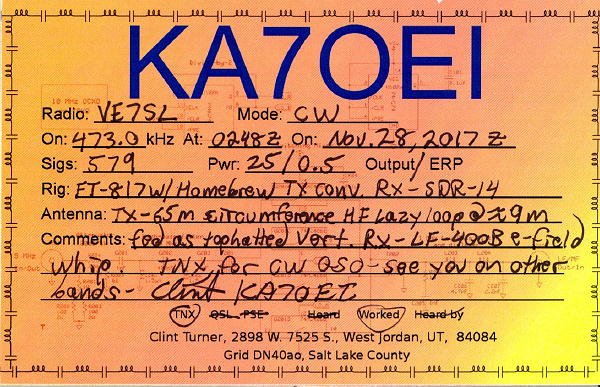 KA7OEI
Radio: VE7SL Mode: CW
On: 473.0 kHz At: 0248Z On: Nov. 28, 2017 Z
Sigs: 579 Pwr: 25/0.5 Output/ ERP
Rig: FT-817 w/ Homebrew TX conv. RX-SDR-14
Antenna: TX-65m circumference HF Lazy loop @ ≈9m
Comments: fed as tophatted Vert. RX-LF-400B e-field
whip. TNX for CW QSO-see you on other
bands- Clint KA7OEI
TNX QSL PSE Heard Worked Heard by
Clint Turner, 2898 W. 7525 S., West Jordan, UT, 84084
Grid DN40ao, Salt Lake County